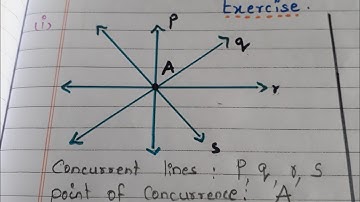 Exercise.
(i)
P
q
A
r
S
Concurrent lines : P, q, r, S
point of Concurrence: A